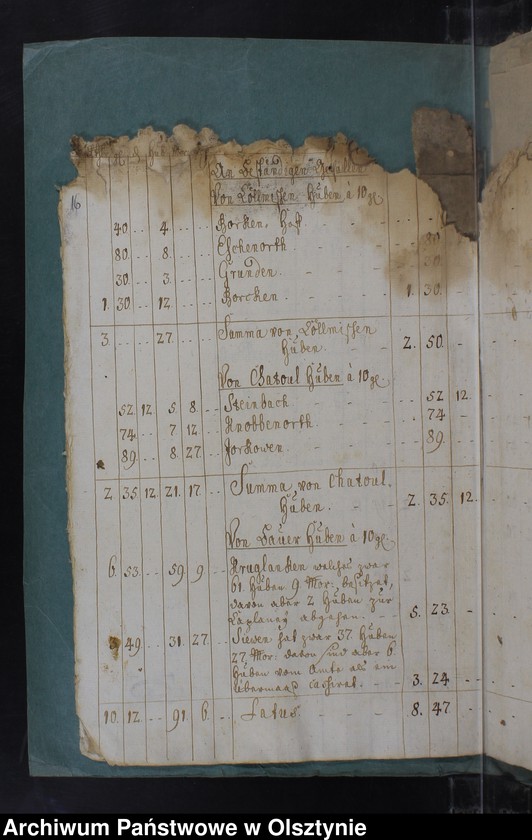 16
An Beständigen Gefällen
Von Cöllmischen Huben à 10 gl.
40 .. 4 .. Borken, Hoff.
80. .. 8. .. Eschenorth 80.
30 .. 3. .. Grunden. 30
1. 30 .. 12 .. Borcken. 1. 30.
3. .. .. 27. Summa von Cöllmischen
Huben. 2. 50.
Von Chatoul Huben à 10 gl.
52. 12 5. 8. Steinbach. 52. 12.
74. .. 7 12 Knobbenorth. 74
89. .. 8. 27. Jorkowen. 89.
2 35 12 21. 17. Summa von Chatoul.
Huben. 2. 35. 12.
Von Bauer Huben à 10 gl.
6. 53. .. 59 9 Kruglancken welches zwar
61. Huben 9 Mor: besitzet,
davon aber 2 Huben zur
Caplaney abgehen. 5. 23
3 49. .. 31. 27. Siewen hat zwar 37. Huben
27. Mor: davon sind aber 6
Huben vom Amte als ein
Übermaaß cassiret. 3. 24
10. 12 .. 91. 6 Latus 8. 47
Archiwum Państwowe w Olsztynie